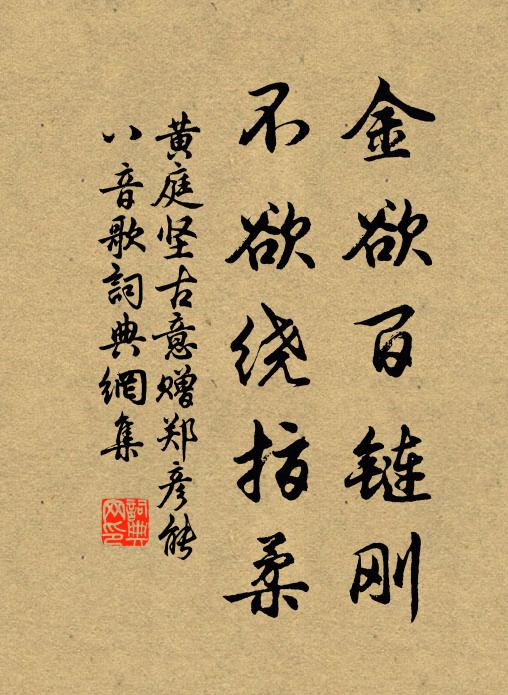 金欲百链刚
不欲绕指柔
黄庭坚古意赠郑彦能
八音歌詞典網集
詞典网印